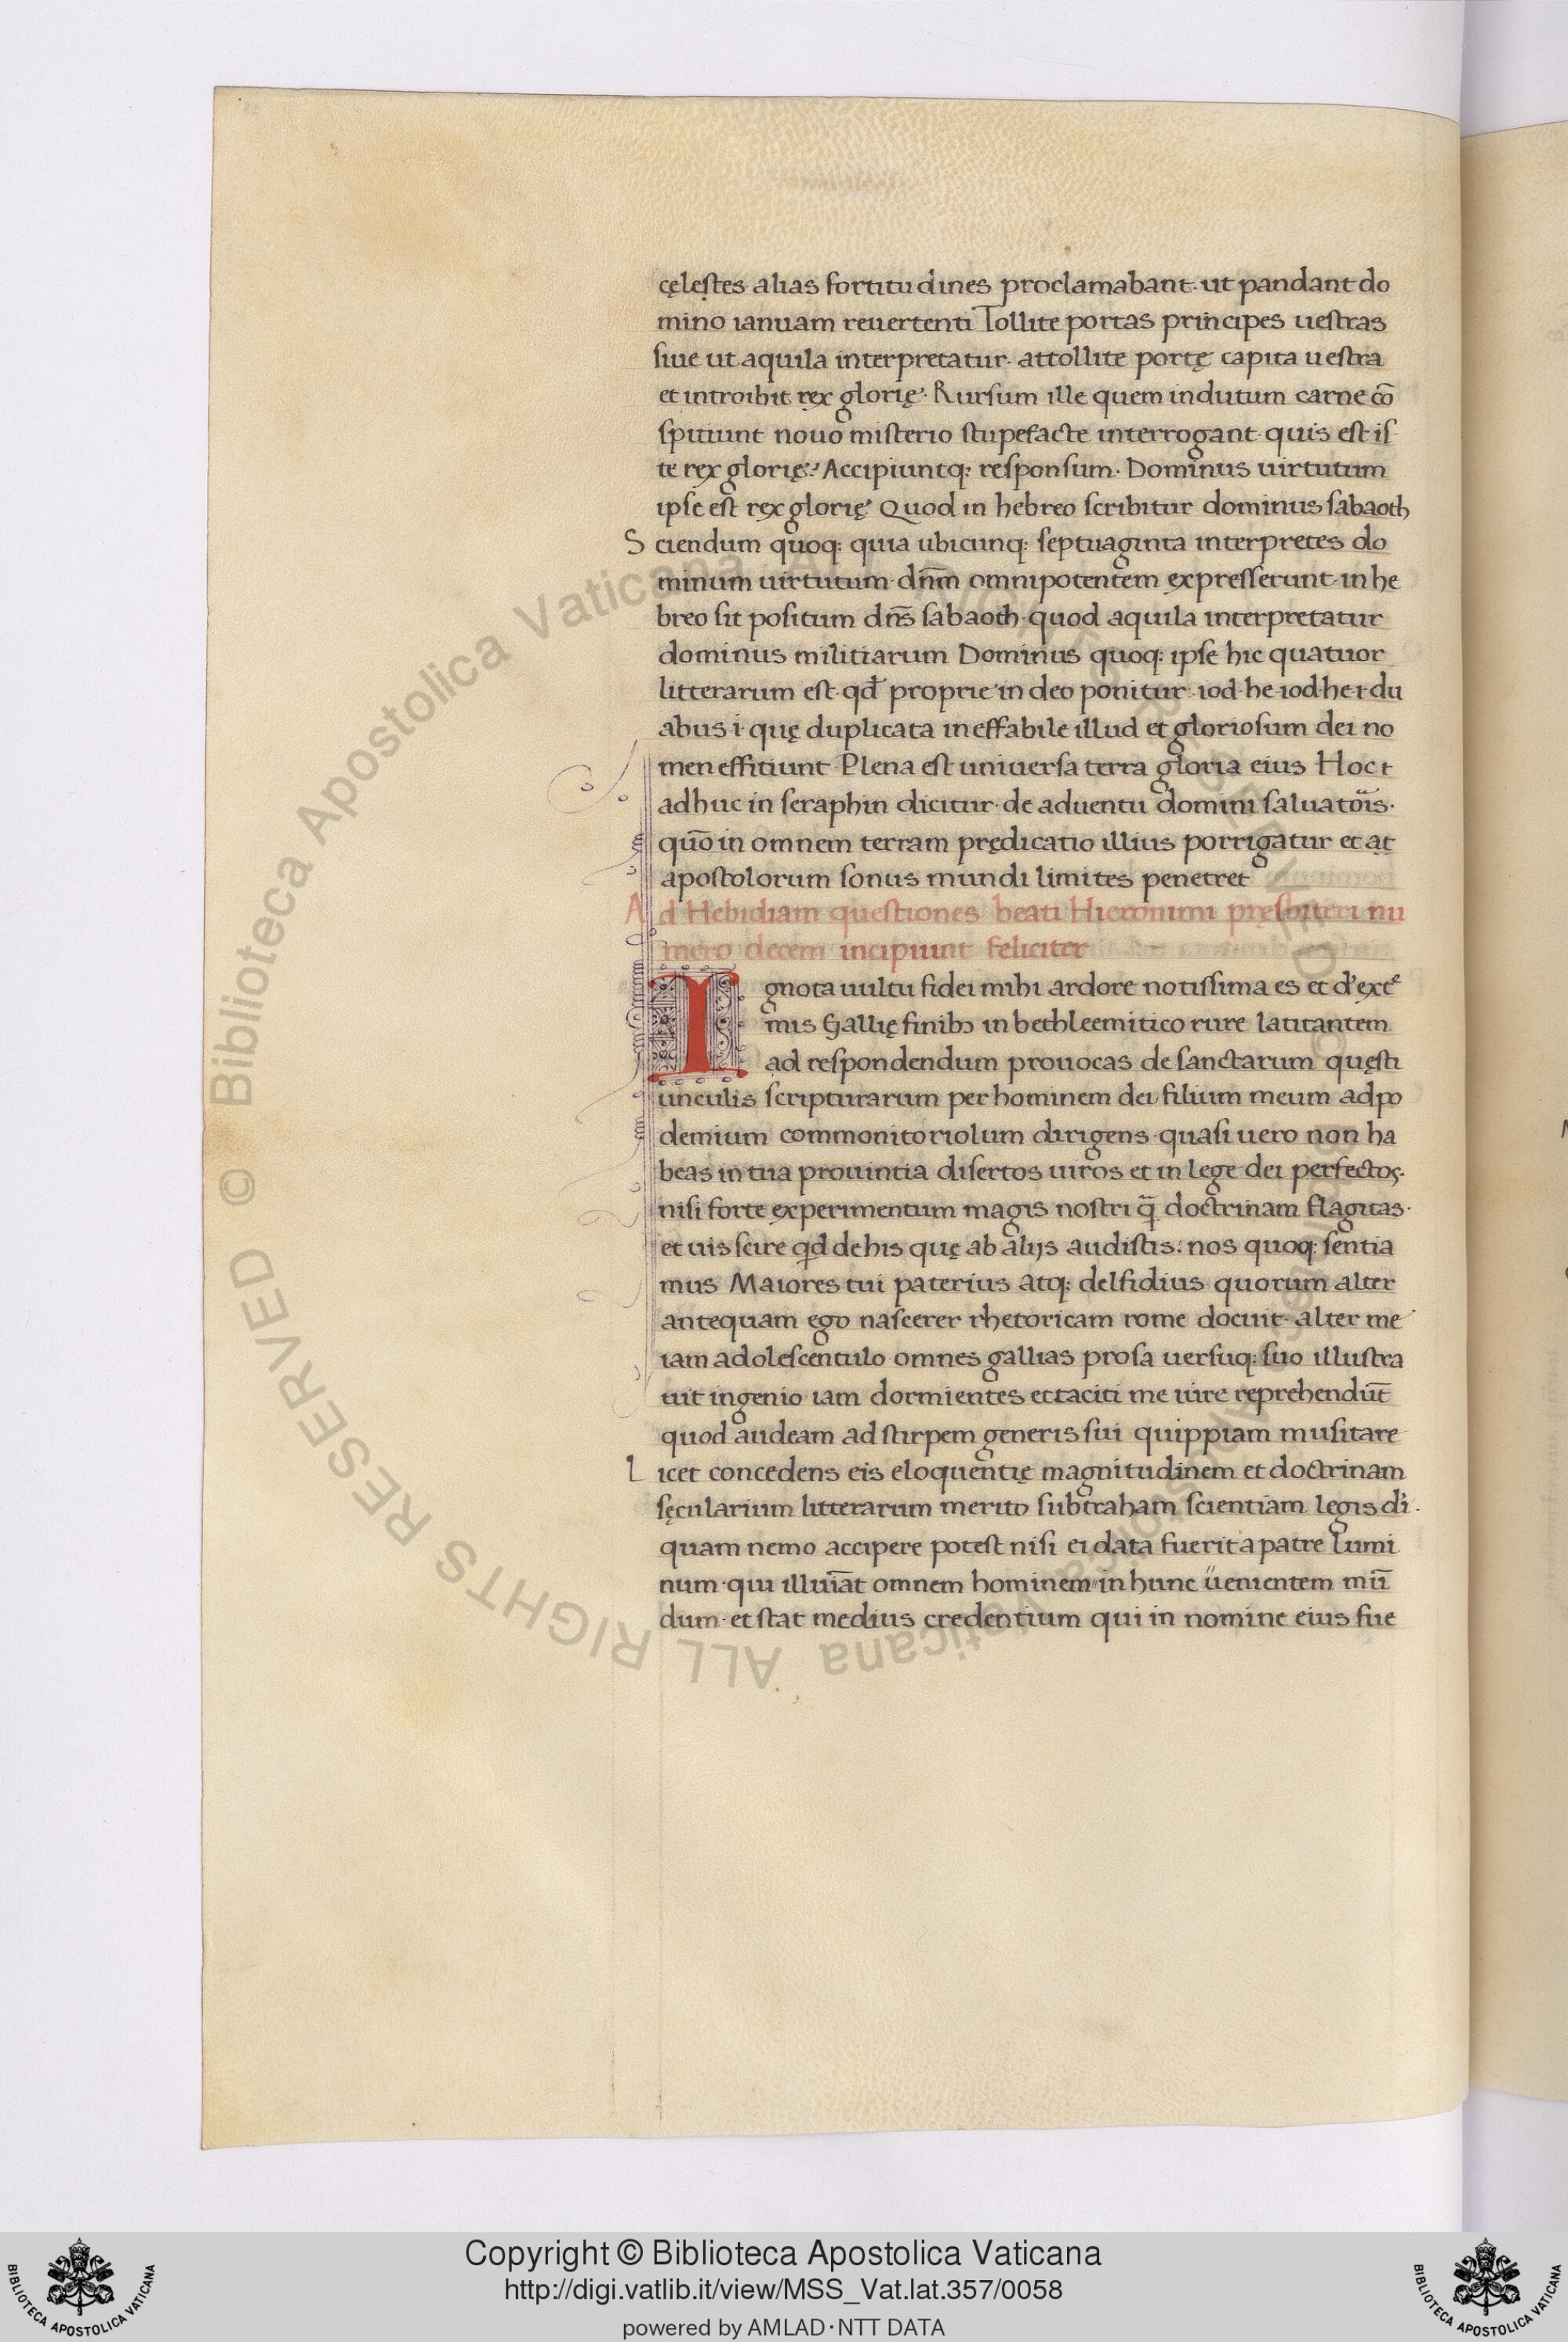 cęlestes alias fortitudines proclamabant· ut pandant do
mino ianuam reuertenti Tollite portas principes uestras
siue ut aquila interpretatur· attollite portę capita uestra
et introibit rex glorię· Rursum ille quem indutum carne cō
spitiunt nouo misterio stupefacte interrogant· quis est is
te rex glorię? Accipiuntq: responsum· Dominus uirtutum
ipse est rex glorię· Quod in hebreo scribitur dominus sabaoth
Sciendum quoq: quia ubicunq: septuaginta interpretes do
minum uirtutum· dn̄m omnipotentem expresserunt· in he
breo sit positum dn̄s sabaoth· quod aquila interpretatur
dominus militiarum Dominus quoq: ipse hic quatuor
litterarum est· qd̄ proprie in deo ponitur· iod·he·iod·he·i·du
abus·i· quę duplicata ineffabile illud et gloriosum dei no
men effitiunt· Plena est uniuersa terra gloria eius Hoc t
adhuc in seraphin dicitur· de aduentu domini saluatōis·
quō in omnem terram prędicatio illius porrigatur et at
apostolorum sonus mundi limites penetret
Ad Hebidiam questiones beati Hieronimi pręsbiteri nu
mero decem incipiunt feliciter
Ignota uultu fidei mihi ardore notissima es et d' exte
mis Gallię finibɔ in bethleemitico rure latitantem
ad respondendum prouocas de sanctarum quęsti
unculis scripturarum per hominem dei filium meum adpo
demium commonitoriolum dirigens· quasi uero non ha
beas in tua prouintia disertos uiros et in lege dei perfectos·
nisi forte experimentum magis nostri q̄ doctrinam flagitas·
et uis scire qd de his quę ab alijs audistis: nos quoq: sentia
mus Maiores tui paterius atq: delfidius quorum alter
antequam ego nascerer rhetoricam rome docuit· alter me
iam adolescentulo omnes gallias prosa uersuq: suo illustra
uit ingenio iam dormientes et taciti me iure reprehendūt
quod audeam ad stirpem generis sui quippiam musitare
Licet concedens eis eloquentię magnitudinem et doctrinam
sęcularium litterarum merito subtraham scientiam legis d'i·
quam nemo accipere potest nisi ei data fuerit a patre Lumi
num· qui illuīat omnem hominem in hunc uenientem mū
dum· et stat medius credentium qui in nomine eius fue
© Biblioteca Apostolica Vaticana ALL RIGHTS RESERVED
Copyright © Biblioteca Apostolica Vaticana
http://digi.vatlib.it/view/MSS_Vat.lat.357/0058
powered by AMLAD·NTT DATA
BIBLIOTECA APOSTOLICA VATICANA
BIBLIOTECA APOSTOLICA VATICANA